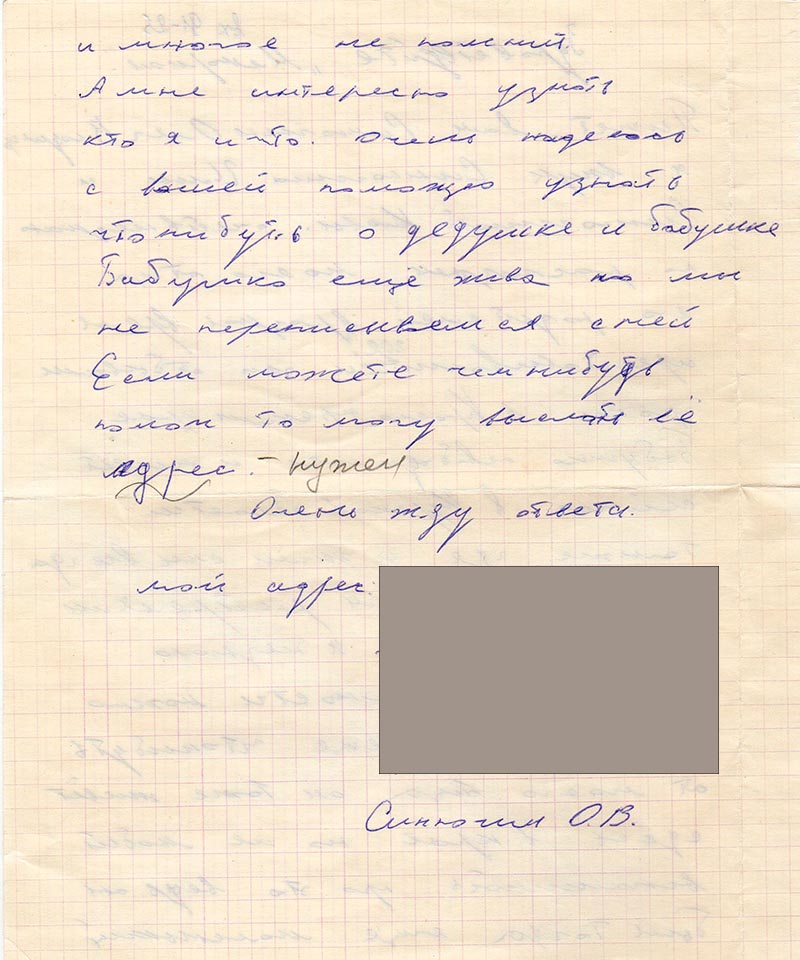 и многое не помнит.
А мне интересно узнать
кто я и что. Очень надеюсь
с вашей помощью узнать
что нибуть о дедушке и бабушке
Бабушка ещё жива но мы
не переписиваемся с ней
Если можете чем нибудь
помоч то могу выслать её
адрес. – нужен
Очень жду ответа.
мой адрес
О.В.